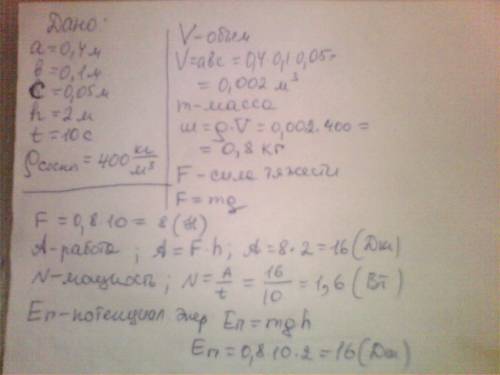 Дано:
a = 0,4 м
b = 0,1 м
c = 0,05 м
h = 2 м
t = 10 с
ρсосны = 400 кг/м³
V - объем
V = abc = 0,4·0,1·0,05 =
= 0,002 м³
m - масса
m = ρ·V = 0,002·400 =
= 0,8 кг
F - сила тяжести
F = mg
F = 0,8·10 = 8 (Н)
A - работа ; A = F·h ; A = 8·2 = 16 (Дж)
N - мощность ; N = A/t = 16/10 = 1,6 (Вт)
Eп - потенциал энер Eп = mgh
Eп = 0,8·10·2 = 16 (Дж)